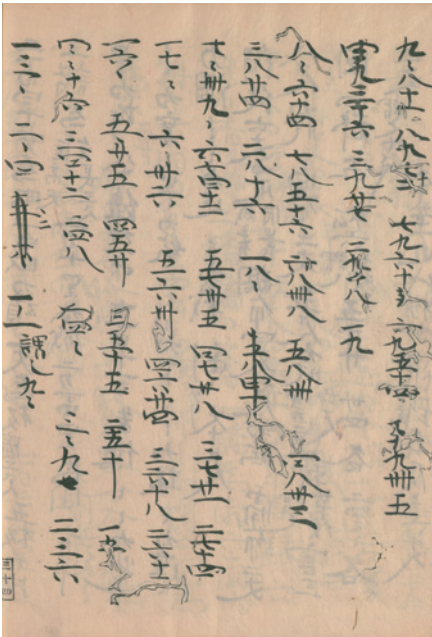 九〻八十一 八九七十二 七九六十三 六九五十四 五九卌五
四九三十六 三九廿七 二九十八 一九
八〻六十四 七八五十六 六八卌八 五八卌 八卅二
三八廿四 二八十六 一八〻
七〻卌九〻 六七四十二 五七卅五 四七廿八 三七廿一 二七十四
一七〻 六〻卅六 五六卅 四六廿四 三六十八 二六十二
一六〻 五廿五 四五廿 三五十五 二五十 一五
四〻十六 三四十二 二四八 一四〻 三〻九 二三六
一三〻 二〻四 一一 謂之九〻